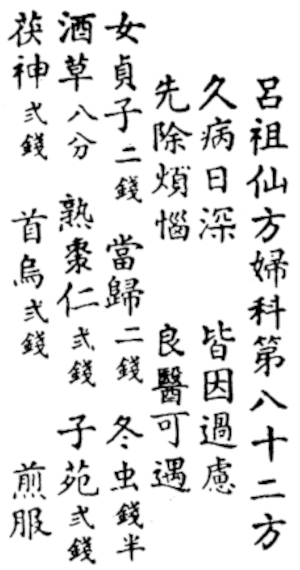 呂祖仙方婦科第八十二方
久病日深 皆因過慮
先除煩惱 良醫可遇
女貞子二錢 當歸二錢 冬虫錢半
酒草八分 熟棗仁弍錢 子苑弍錢
茯神弍錢 首烏弍錢 煎服